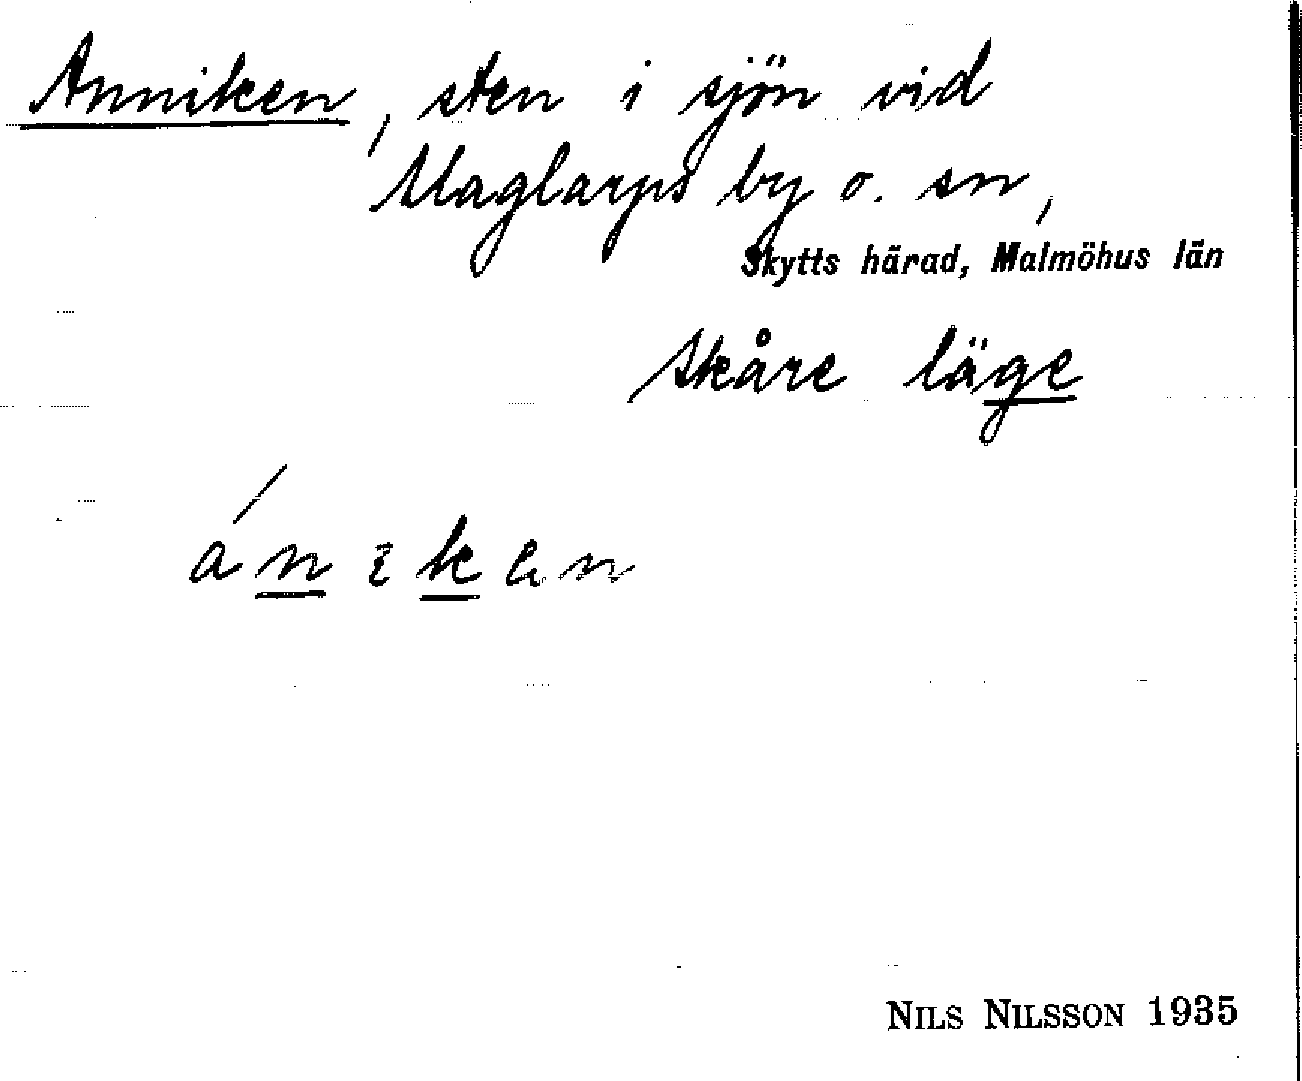 Anniken, sten i sjön vid
Maglarps by o. sn,
Skytts härad, Malmöhus län
Skåre läge
ánıkən
NILS NILSSON 1935